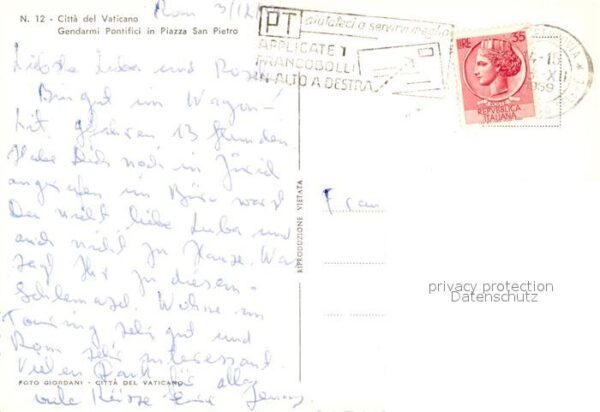 N. 12 - Città del Vaticano
Gendarmi Pontifici in Piazza San Pietro
Rom 3/12
PT aiutateci a servirvi meglio
APPLICATE I
FRANCOBOLLI
IN ALTO A DESTRA
LIRE 35
POSTE
REPVBBLICA
ITALIANA
1959
Liebste Luba und Rosa
Bin gut im Wagon-
Lit gefahren 13 Stunden
Habe Dich noch in Zürich
angerufen im Büro warst
Du nicht liebe Luba und
auch nicht zu Hause. Was
sagt Ihr zu diesem
Schlemasel. Wohne im
Touring sehr gut und
Rom sehr interessant.
Vielen Dank für alles
viele Küsse Euer Jenny
Frau
RIPRODUZIONE VIETATA
privacy protection
Datenschutz
FOTO GIORDANI - CITTÀ DEL VATICANO